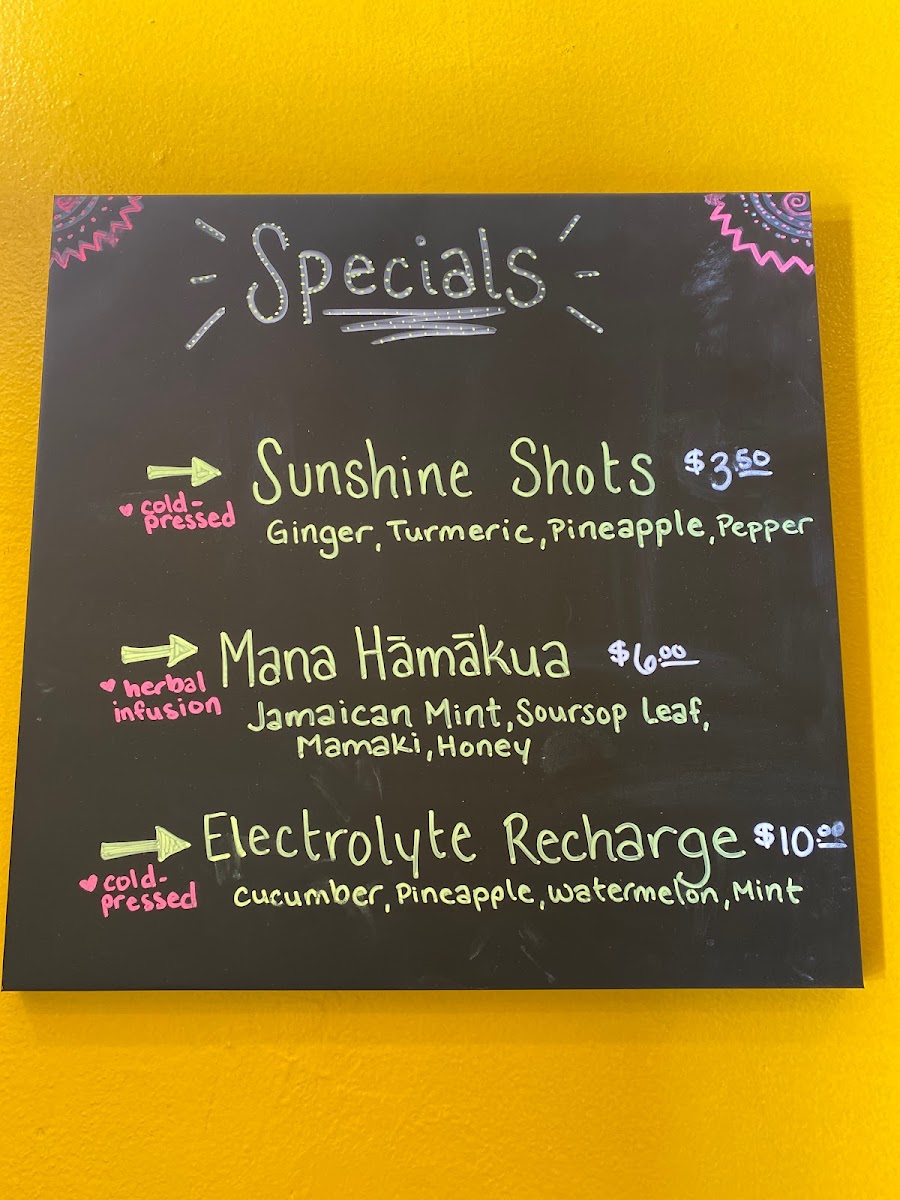 Specials
Sunshine Shots $3.50
♥ cold-
pressed
Ginger, Turmeric, Pineapple, Pepper
Mana Hāmākua $6.00
♥ herbal
infusion
Jamaican Mint, Soursop Leaf,
Mamaki, Honey
Electrolyte Recharge $10.00
♥ cold-
pressed
Cucumber, Pineapple, Watermelon, Mint